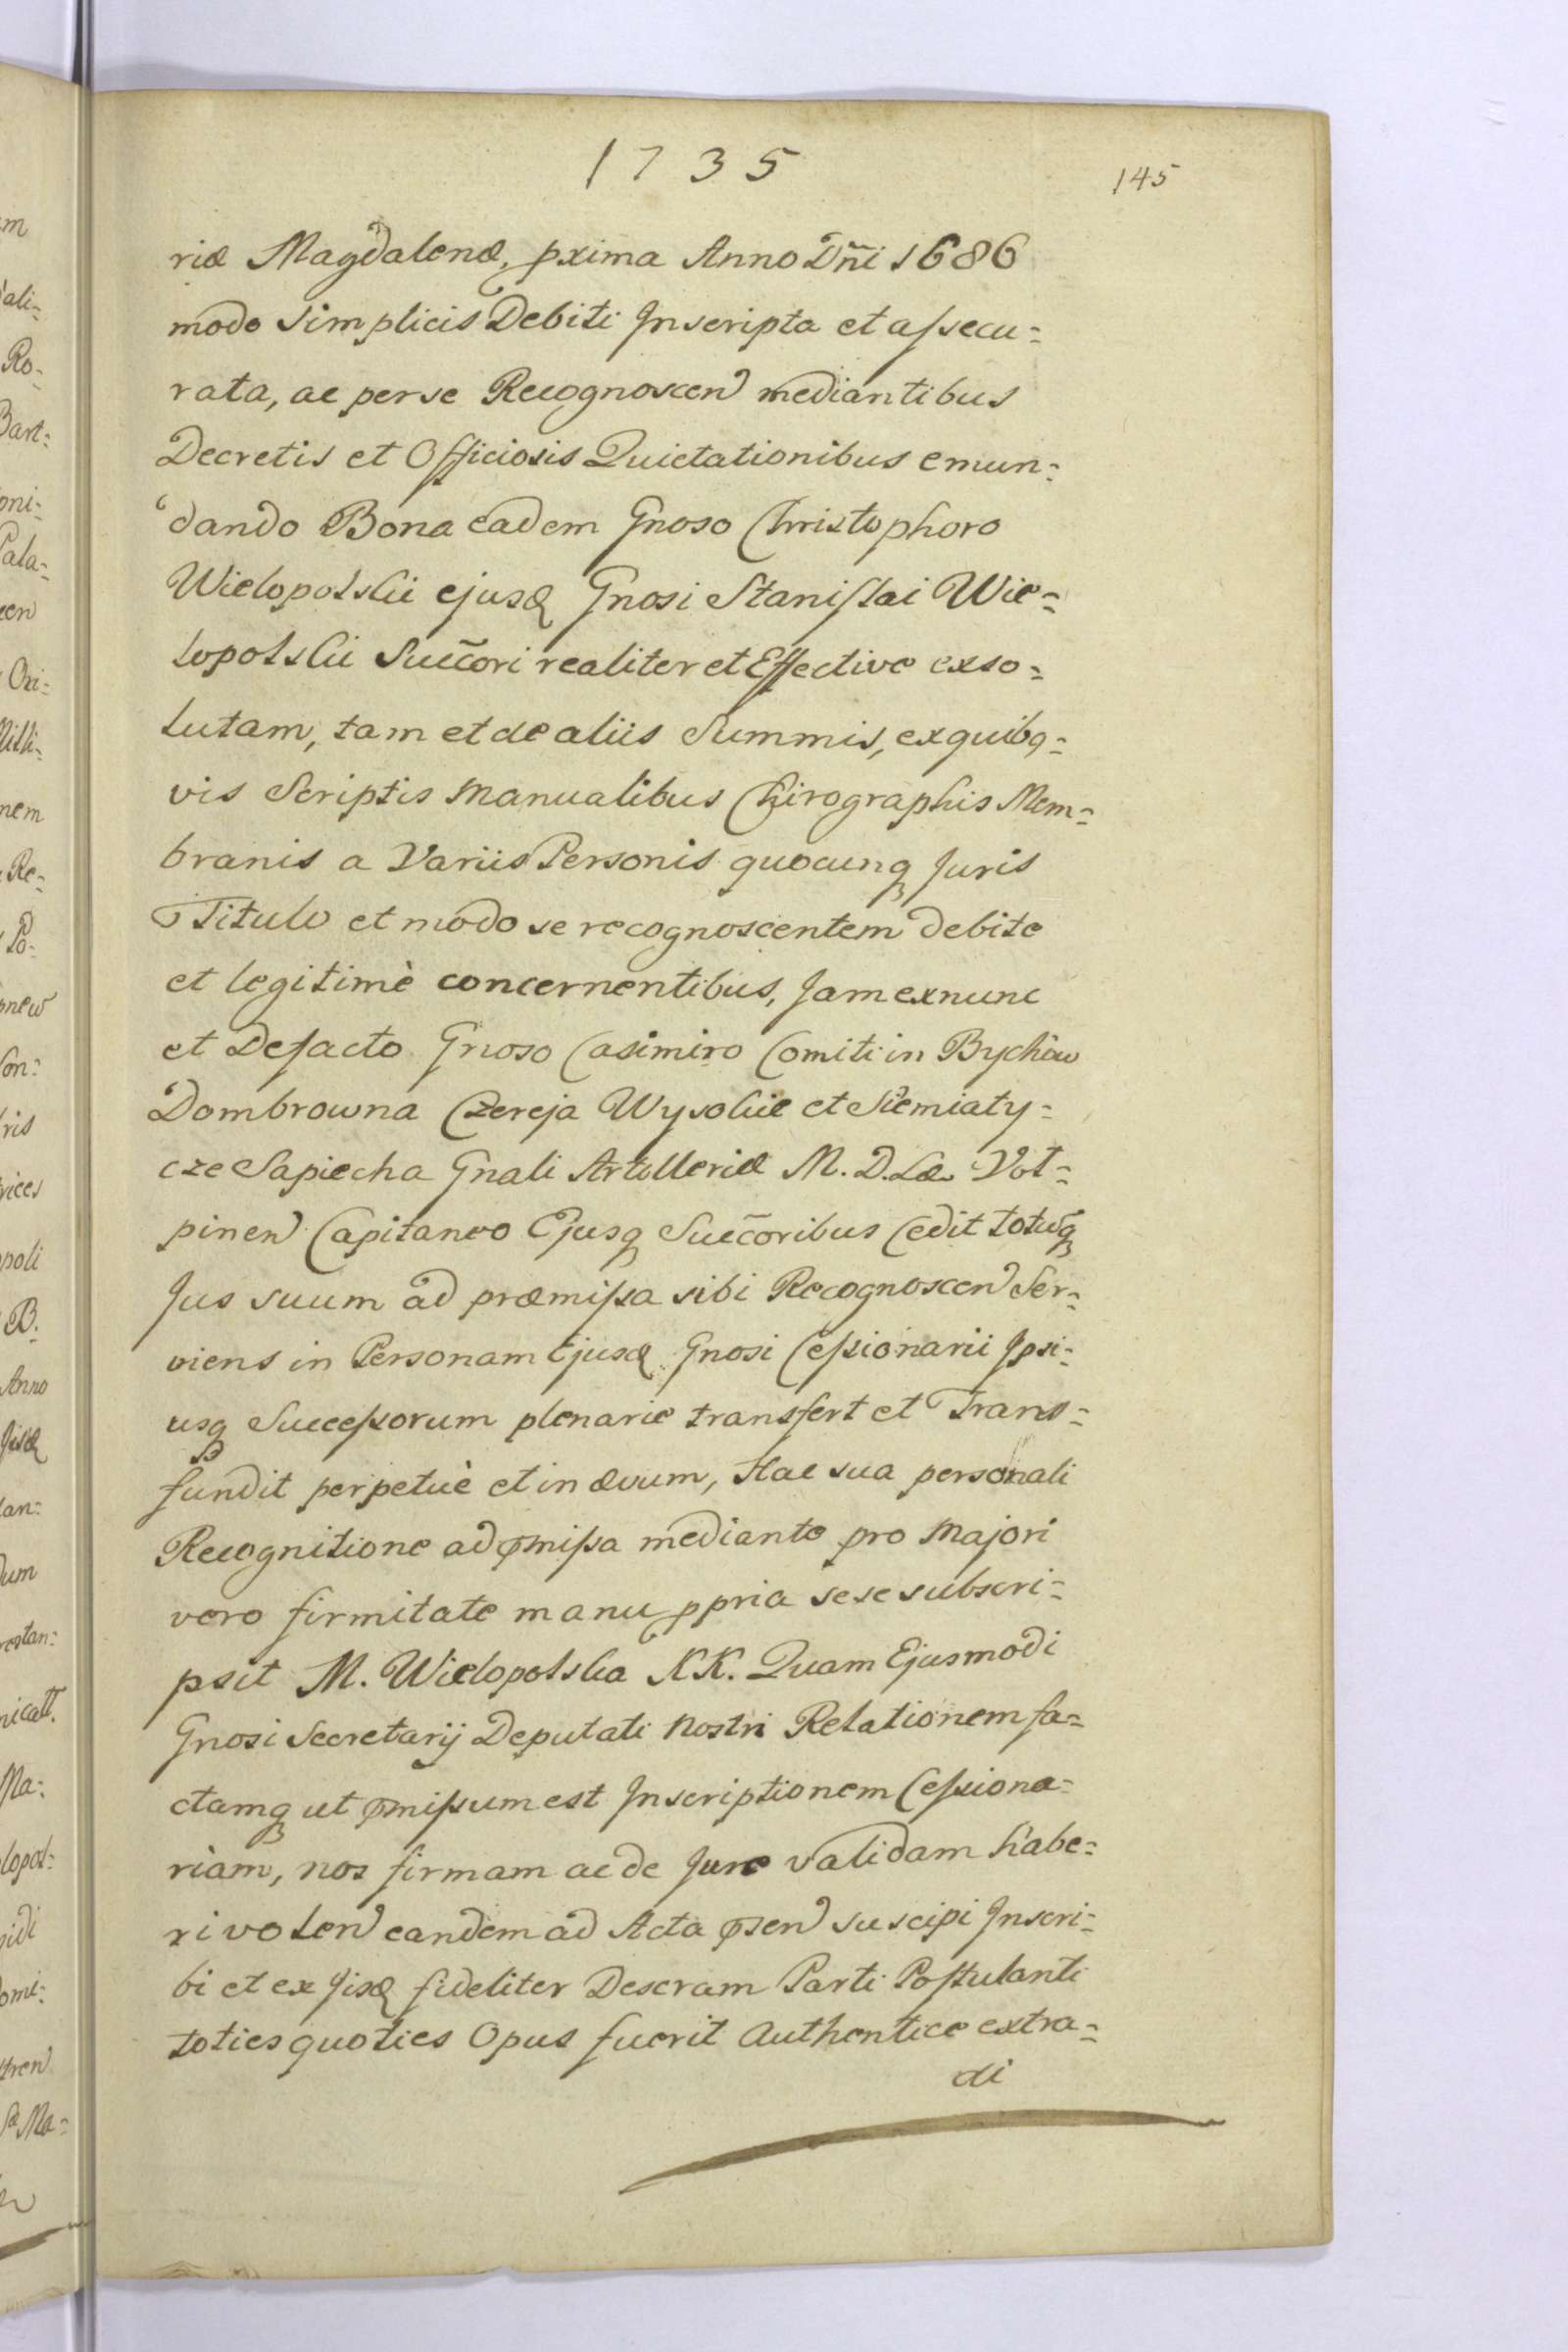 1735
145
riæ Magdalenæ, pxima Anno Dñi 1686
modo Simplicis Debiti Inscripta et assecu=
rata, ac per se Recognoscen mediantibus
Decretis et Officiosis Quietationibus emun=
dando Bona eadem Gnoso Christophoro
Wielopolskii ejusd Gnosi Stanislai Wie=
lopolskii Succori realiter et Effective exso=
lutam, tam et de aliis Summis, ex quibq=
vis Scriptis Manualibus Chirographis Mem=
branis a Variis Personis quocunq Juris
Titulo et modo se recognoscentem debite
et legitimè concernentibus, Jam ex nunc
et De facto Gnoso Casimiro Comiti in Bychow
Dombrowna Czereja Wysokie et Siemiaty=
cze Sapiecha Gnali Artolleriæ M. D. Læ Vol=
pinen Capitaneo Ejusq Succoribus Cedit totuq
Jus suum ad præmissa sibi Recognoscen Ser=
viens in Personam Ejusd Gnosi Cessionarii Ipsi=
usq Successorum plenarie transfert et Trans=
fundit perpetuè et in ævum, Hac sua personali
Recognitione ad pmissa mediante pro Majori
vero firmitate manu ppria sese subscri=
psit M. Wielopolska KK. Quam Ejusmodi
Gnosi Secretarij Deputati Nostri Relationem fa=
ctamq ut pmissum est Inscriptionem Cessiona=
riam, nos firmam ac de Jure validam habe=
ri volen eandem ad Acta psen suscipi Inscri=
bi et ex Iisd fideliter Descram Parti Postulanti
toties quoties Opus fuerit Authentice extra=
di